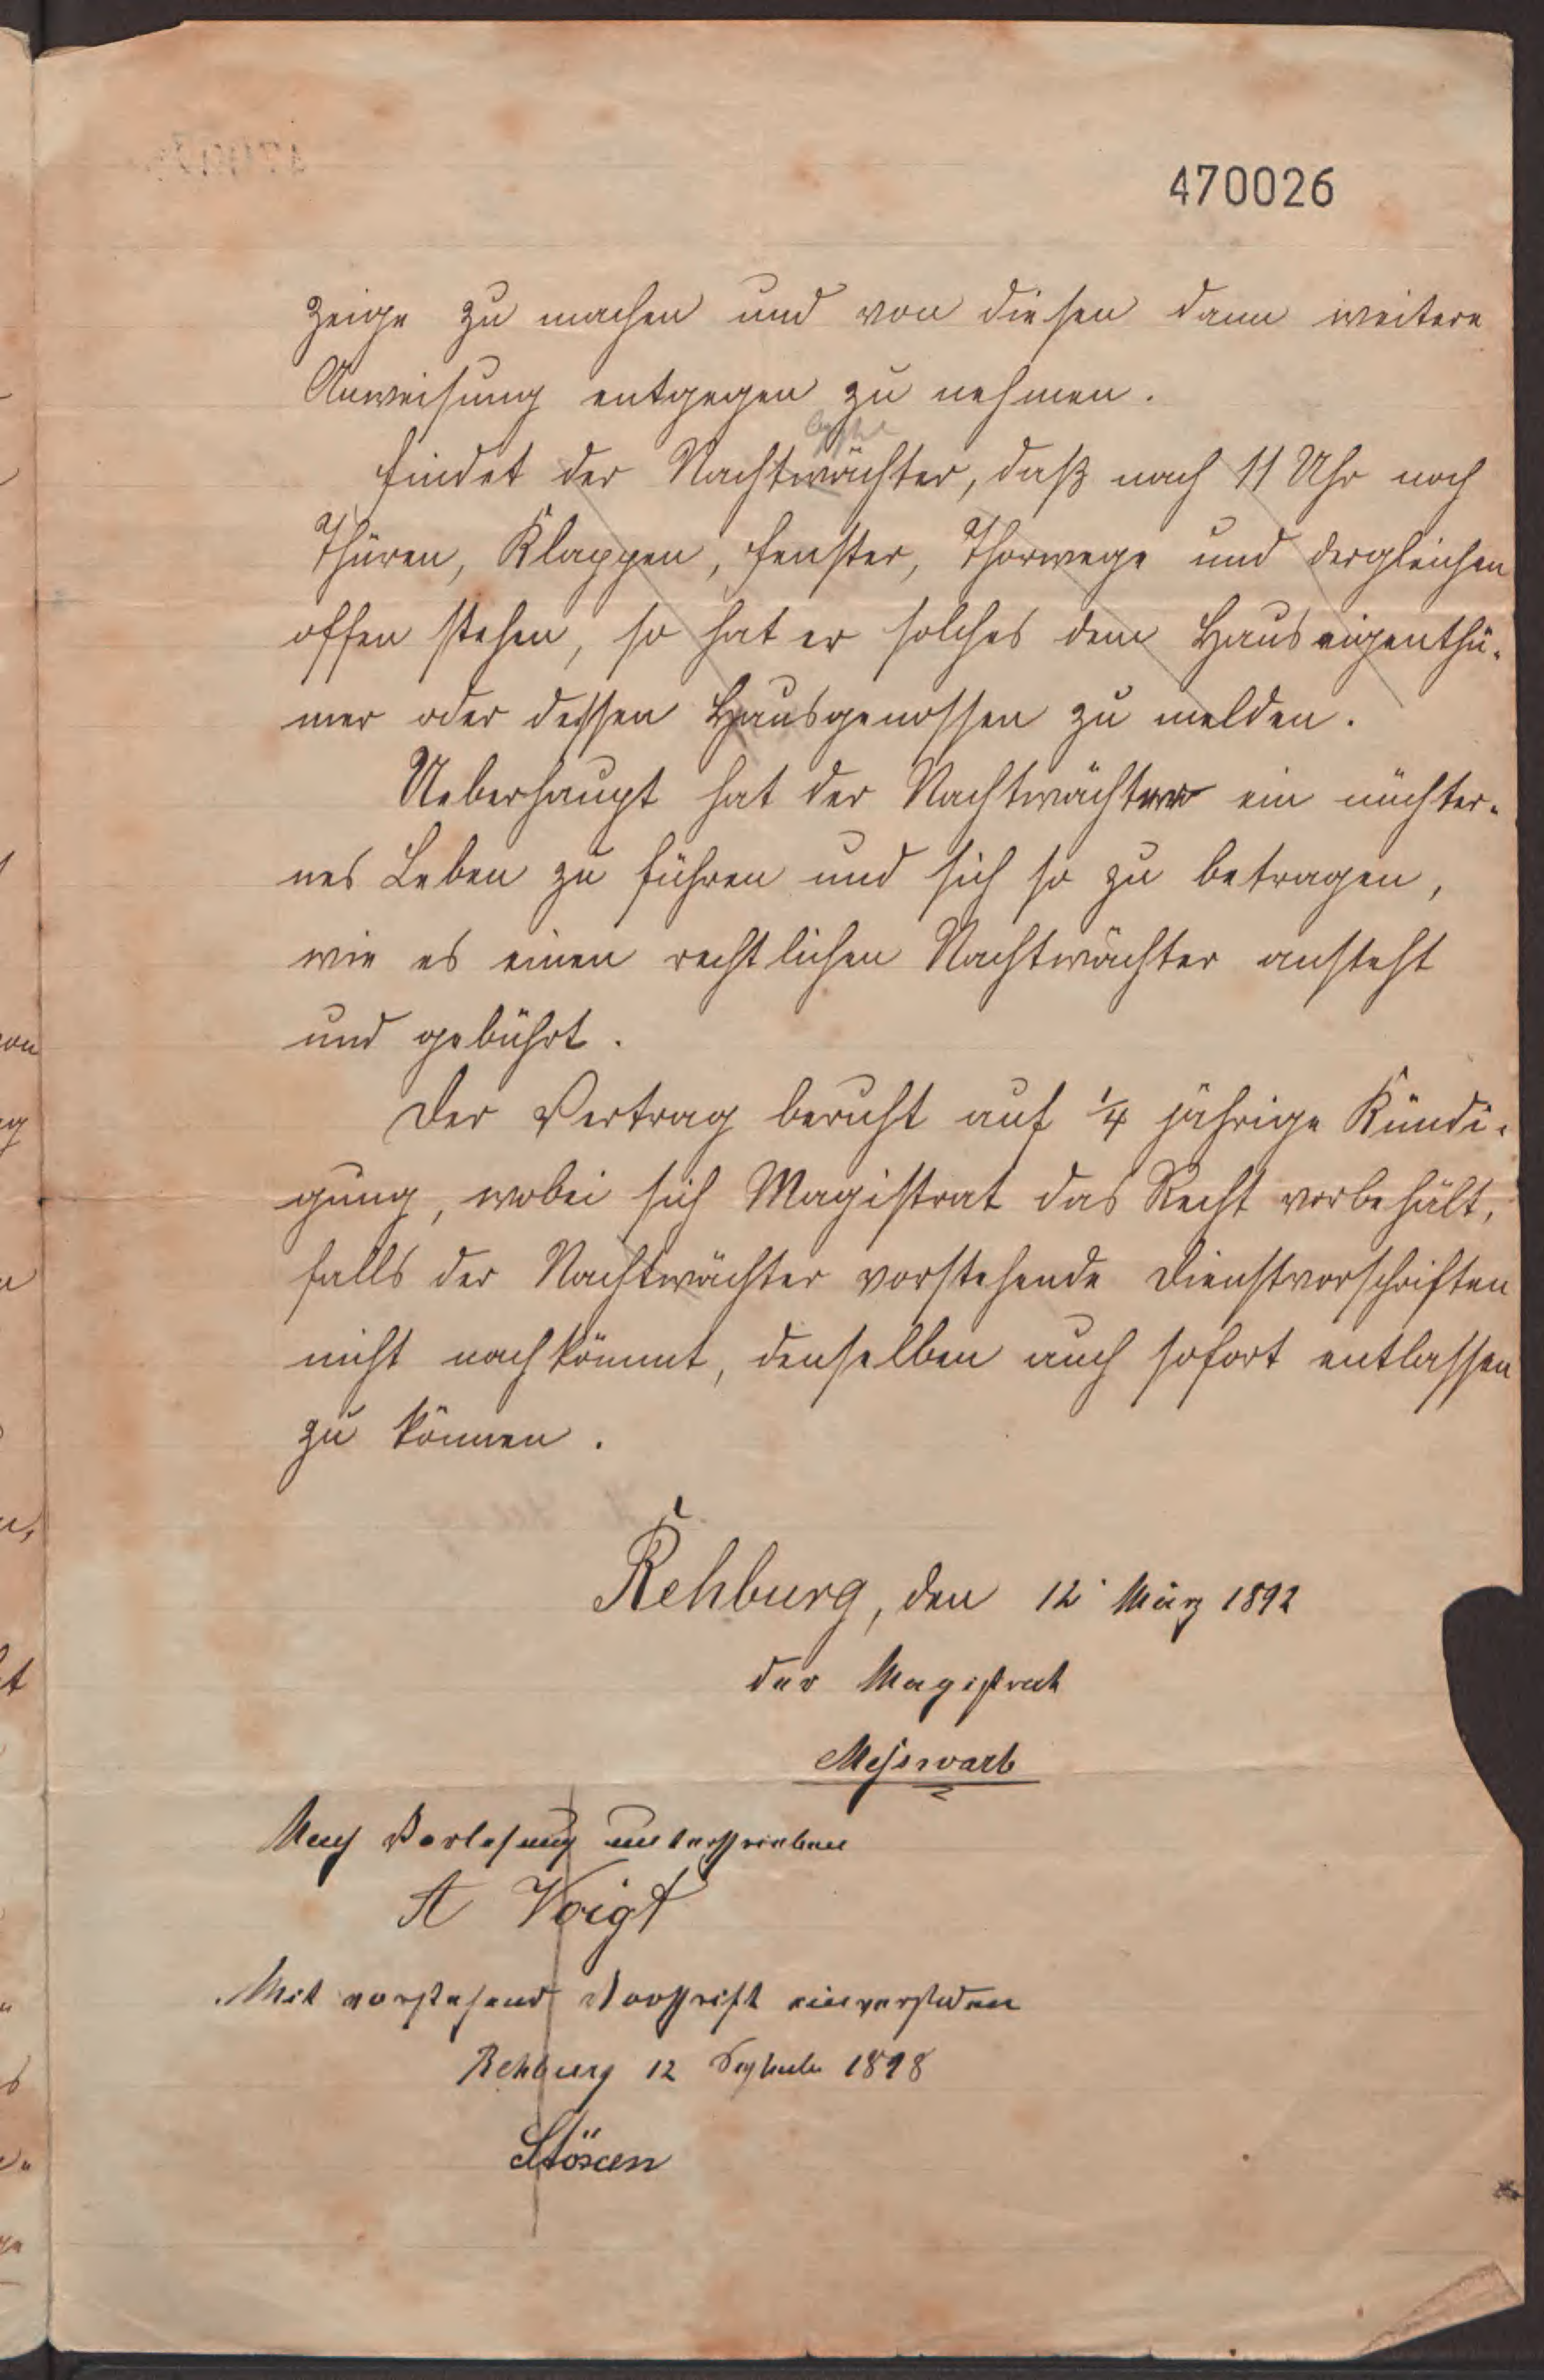 470026
zeige zu machen und von diesen dann weitere
Anweisung entgegen zu nehmen.
Findet der Nachtwächter, daß nach 11 Uhr noch
Thüren, Klappen, Fenster, Thorwege und dergleichen
offen stehen, so hat er solches dem Hauseigenthü-
mer oder dessen Hausgenossen zu melden.
Ueberhaupt hat der Nachtwächter ein nüchter-
nes Leben zu führen und sich so zu betragen,
wie es einen rechtlichen Nachtwächter ansteht
und gebührt.
Der Vertrag beruht auf ¼ jährige Kündi-
gung, wobei sich Magistrat das Recht vorbehält,
falls der Nachtwächter vorstehende Dienstvorschriften
nicht nachkömmt, denselben auch sofort entlassen
zu können.
Rehburg, den 12. März 1892
der Magistrat
Meßwarb
Nach Vorlesung unterschrieben
A Voigt
Mit vorstehend Vorschrift einverstanden
Rehburg 12 September 1898